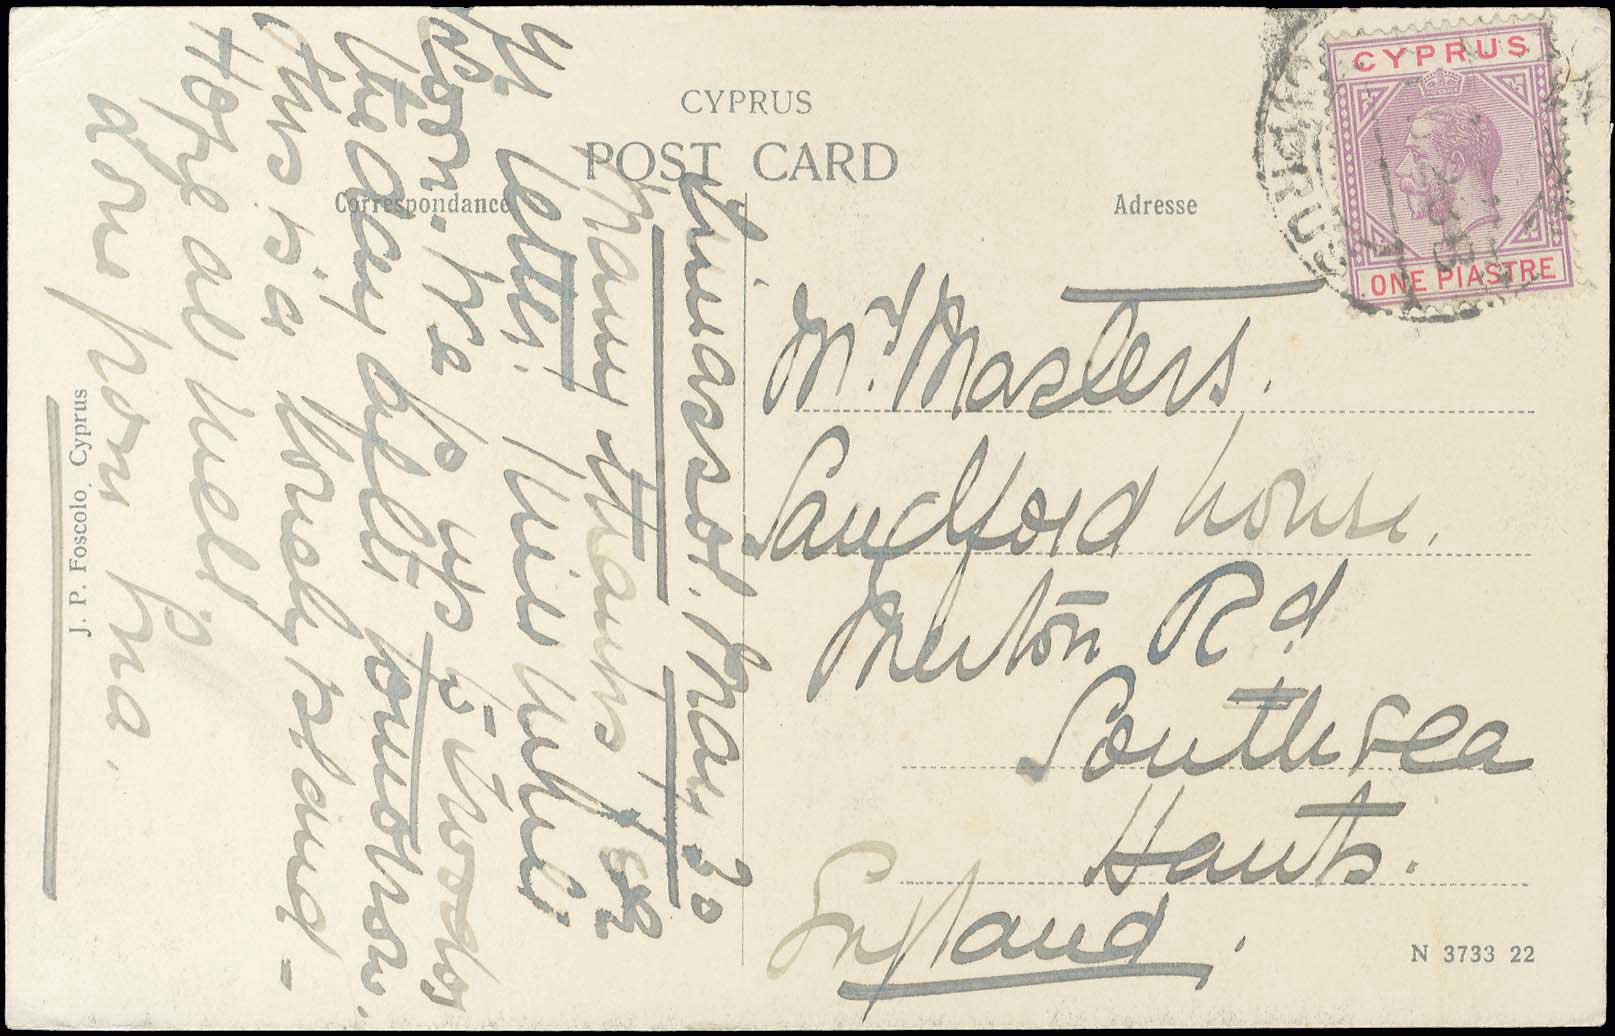 CYPRUS
POST CARD
Correspondance
Adresse
CYPRUS
ONE PIASTRE
CYPRUS
Limassol. May 30
Many thanks for
yr letter. Will write
soon. We go up to Troodos
the day after tomorrow.
This is a lovely island -
Hope all well
love from
J. P. Foscolo, Cyprus
Mrs Masters.
Sandford House.
Merton Rd
Southsea
Hants.
England.
N 3733 22